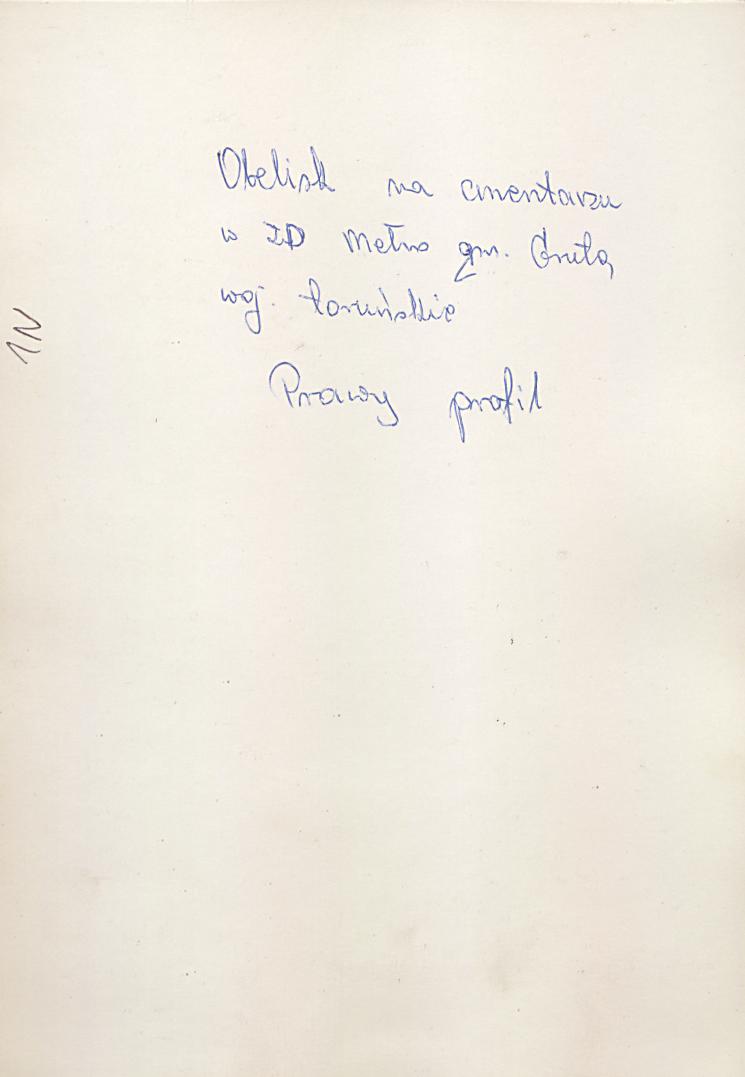 Obelisk na cmentarzu
w ZD Mełno gm. Gruta,
woj. toruńskie
Prawy profil
1N